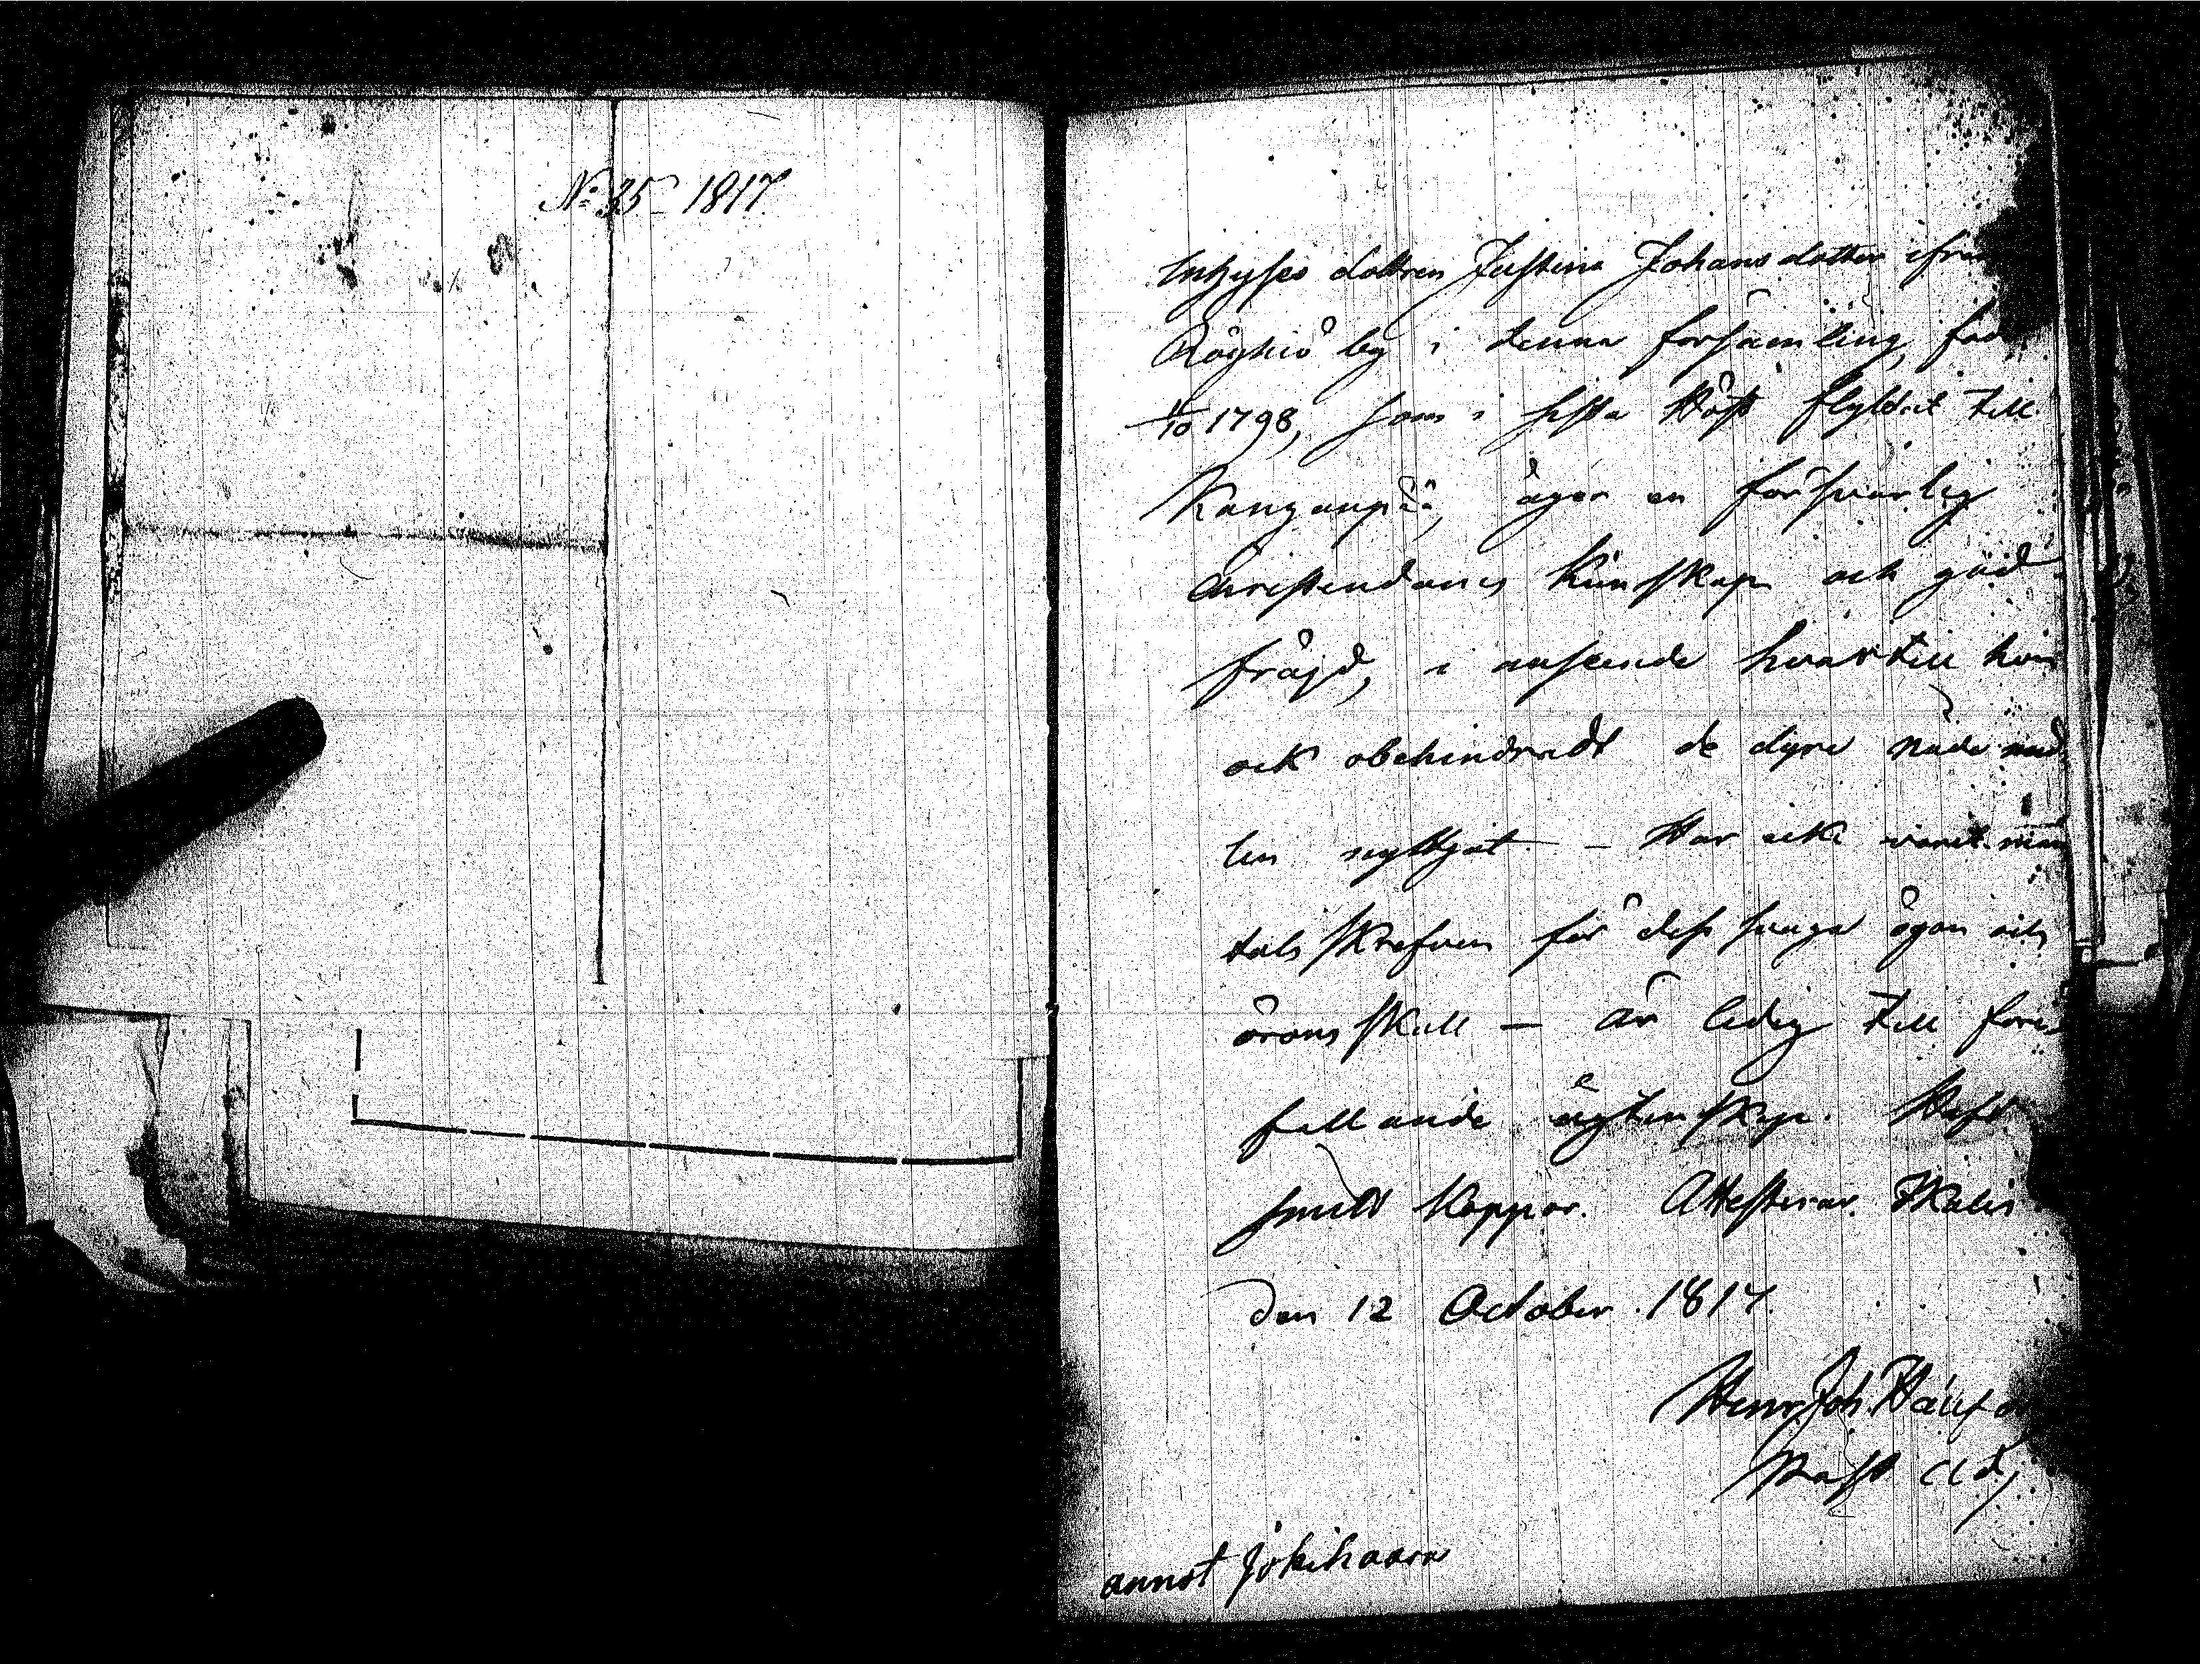 No 35 1817.
Inhyses dottren Justina Johansdotter ifrån
by i denna församling, föd
11/10 1798, som i sista Höst flyttat till
Kanganpää, äger en försvarlig
Christendoms Kunskap och god
fräjd, i anseende hvartill hon
ock obehindradt de dyra nåde med
len nyttjat. — Har icke varit man
tals skrefven för dess svaga ögon och
örons skull — är ledig till före
fallande ägtenskap. Haft
smitt koppor. Attesterar. Ikalis
den 12 October 1817.
Henr. Joh.
Past. Adj.
annot Jokihaara